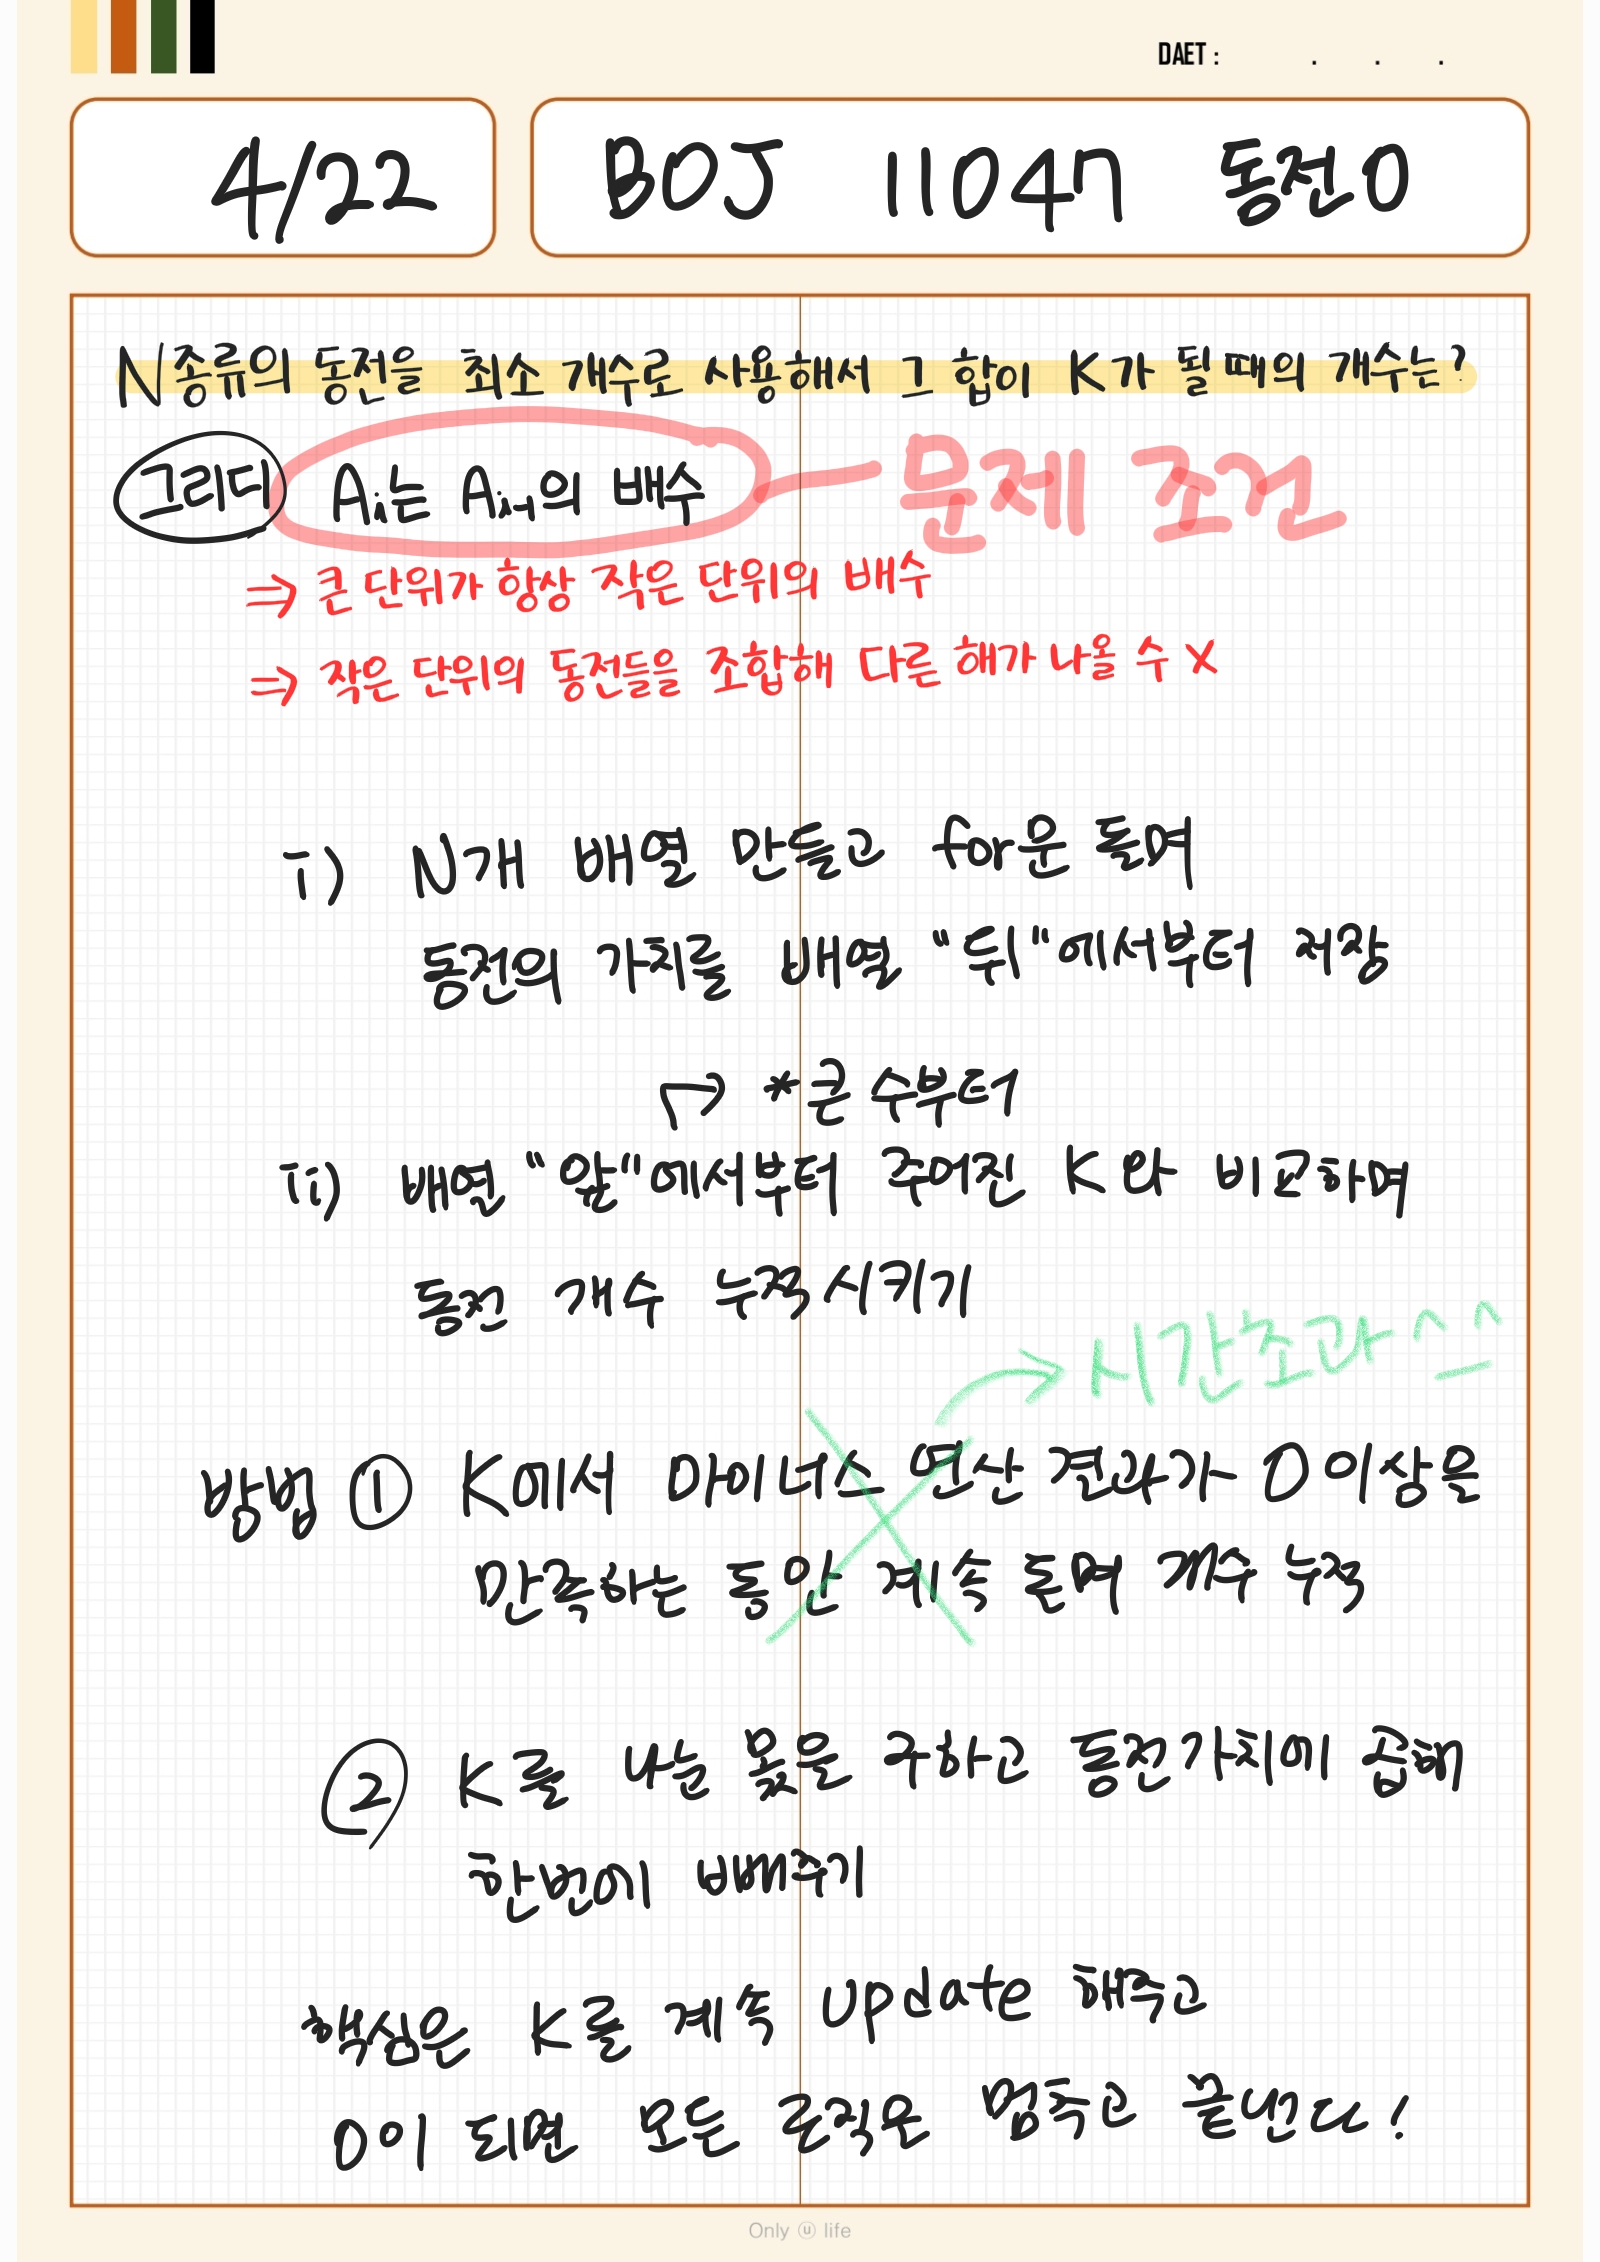 DAET : . . .
4/22
BOJ 11047 동전0
N종류의 동전을 최소 개수로 사용해서 그 합이 K가 될 때의 개수는?
그리디 Ai는 Ai-1의 배수 문제 조건
⇒ 큰 단위가 항상 작은 단위의 배수
⇒ 작은 단위의 동전들을 조합해 다른 해가 나올 수 X
i) N개 배열 만들고 for문 돌며
동전의 가치를 배열 "뒤"에서부터 저장
↱ *큰 수부터
ii) 배열 "앞"에서부터 주어진 K와 비교하며
동전 개수 누적시키기
→ 시간초과 ^_^
방법 ① K에서 마이너스 연산 결과가 0이상을
만족하는 동안 계속 돌며 개수 누적
② K를 나눈 몫을 구하고 동전가치에 곱해
한번에 빼주기
핵심은 K를 계속 update 해주고
0이 되면 모든 로직은 멈추고 끝낸다!
Only ⓤ life